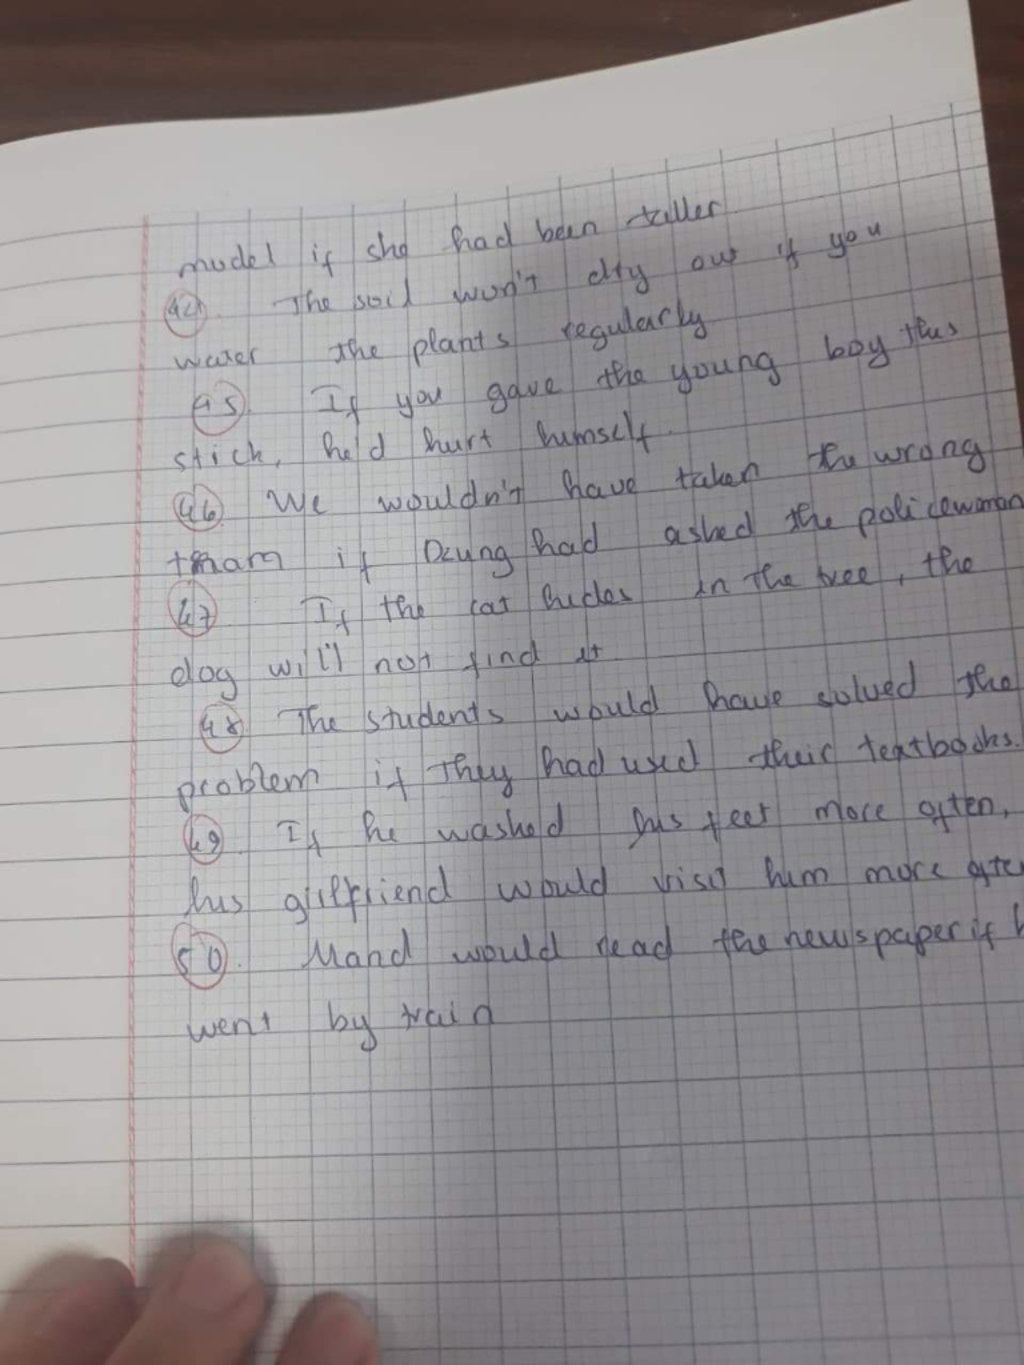 model if she had been taller
44. The soil won't dry out if you
water the plants regularly
45. If you gave the young boy this
stick, he'd hurt himself.
46. We wouldn't have taken the wrong
if Dzung had asked the policewoman
47. If the cat hides in the tree, the
dog will not find it
48. The students would have solved the
problem if they had used their textbooks.
49. If he washed his feet more often,
his girlfriend would visit him more ofte
50. would read the newspaper if h
went by train